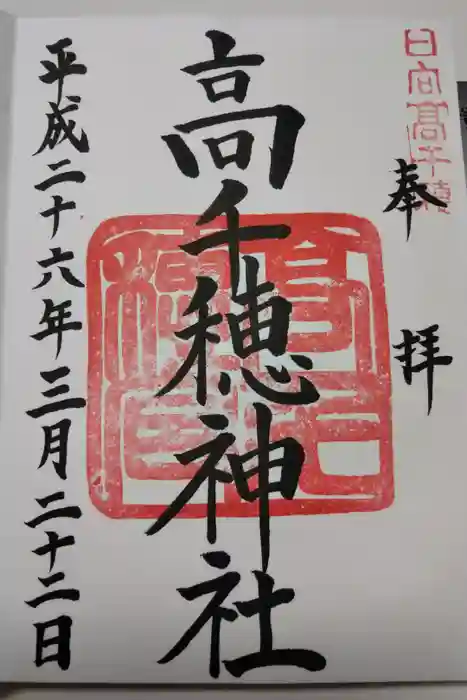 日向高千穂
奉拝
高千穂神社
平成二十六年三月二十二日